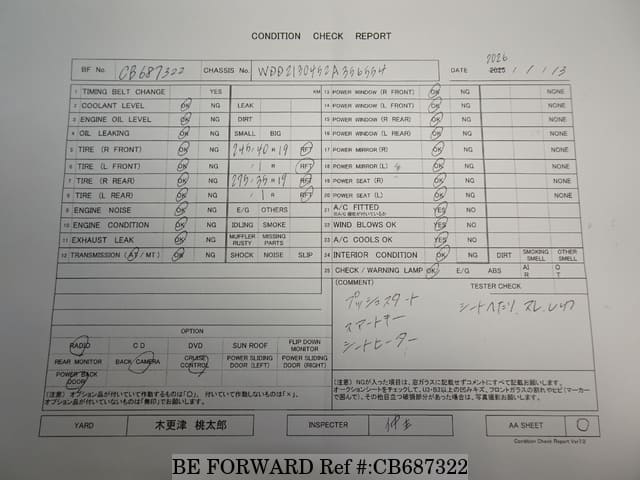 CONDITION CHECK REPORT
BF No. CB687322 CHASSIS No. WDD2130452A356554 DATE 2025 2026 / 1 / 13
1 TIMING BELT CHANGE YES KM
2 COOLANT LEVEL OK NG LEAK
3 ENGINE OIL LEVEL OK NG DIRT
4 OIL LEAKING OK NG SMALL BIG
5 TIRE (R FRONT) OK NG 245/40R19 RFT
6 TIRE (L FRONT) OK NG / R RFT
7 TIRE (R REAR) OK NG 275/35R19 RFT
8 TIRE (L REAR) OK NG / R RFT
9 ENGINE NOISE OK NG E/G OTHERS
10 ENGINE CONDITION OK NG IDLING SMOKE
11 EXHAUST LEAK OK NG MUFFLER RUSTY MISSING PARTS
12 TRANSMISSION (AT / MT) OK NG SHOCK NOISE SLIP
13 POWER WINDOW (R FRONT) OK NG NONE
14 POWER WINDOW (L FRONT) OK NG NONE
15 POWER WINDOW (R REAR) OK NG NONE
16 POWER WINDOW (L REAR) OK NG NONE
17 POWER MIRROR (R) OK NG NONE
18 POWER MIRROR (L) OK NG NONE
19 POWER SEAT (R) OK NG NONE
20 POWER SEAT (L) OK NG NONE
21 A/C FITTED YES NG
22 WIND BLOWS OK YES NG
23 A/C COOLS OK YES NG
24 INTERIOR CONDITION OK NG DIRT SMOKING SMELL OTHER SMELL
25 CHECK / WARNING LAMP OK E/G ABS AIR OT
(COMMENT)
プッシュスタート
スマートキー
シートヒーター
TESTER CHECK
シートヘたり、スレ、シワ
OPTION
RADIO CD DVD SUN ROOF FLIP DOWN MONITOR
REAR MONITOR BACK CAMERA CRUISE CONTROL POWER SLIDING DOOR (LEFT) POWER SLIDING DOOR (RIGHT)
POWER BACK DOOR
(注意) オプション品が付いていて作動するものは「〇」, 付いていて作動しないものは「×」,
オプション品が付いていないものは「無印」でお願いします。
(注意) NGが入った項目は、窓ガラスに記載せずコメントにすべて記載お願いします。
オークションシートをチェックして、U3・B3以上の凹みキズ、フロントガラスの割れやヒビ(マーカー
で囲んで)、その他目立つ破損部分があった場合は、写真撮影お願いします。
YARD 木更津 桃太郎 INSPECTER AA SHEET 〇
Condition Check Report Ver7.0
BE FORWARD Ref #:CB687322